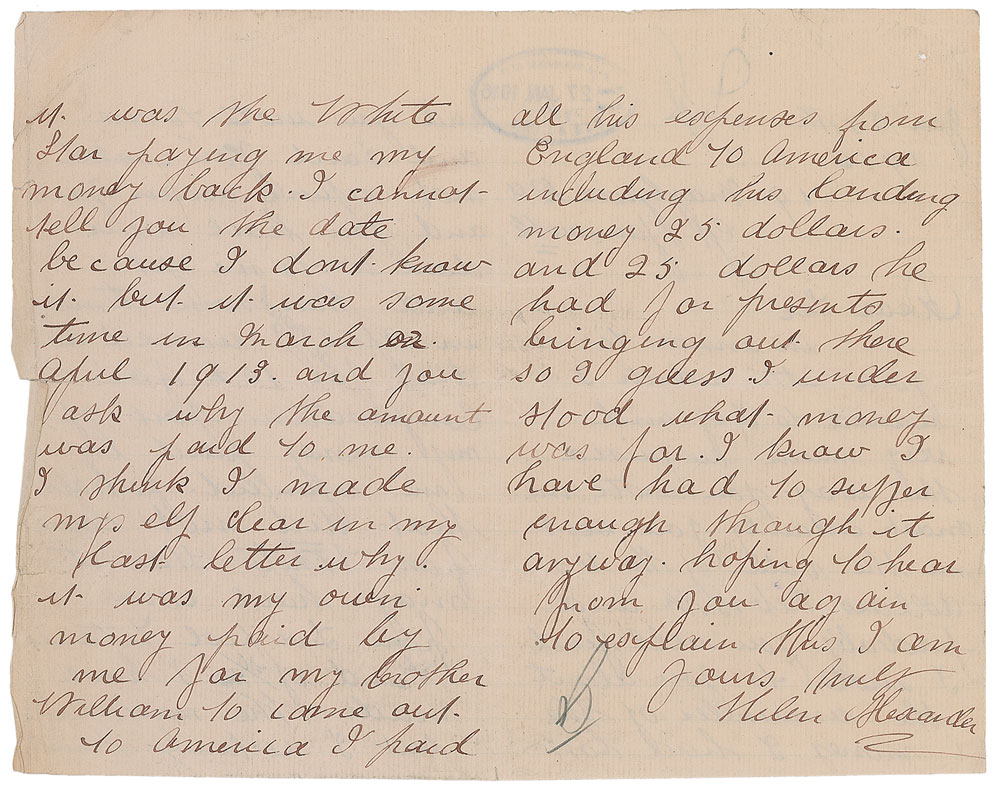 it was the White
Star paying me my
money back. I cannot
tell you the date
because I dont know
it but it was some
time in March or.
April 1913. and you
ask why the amount
was paid to me.
I think I made
myself clear in my
last letter why.
it was my own
money paid by
me for my brother
William to come out
to America I paid
all his expenses from
England to America
including his landing
money 25 dollars.
and 25 dollars he
had for presents
bringing out there
so I guess I under
stood what money
was for. I know I
have had to suffer
enough through it
anyway. hoping to hear
from you again
to explain this I am
yours truly
Helen Alexander